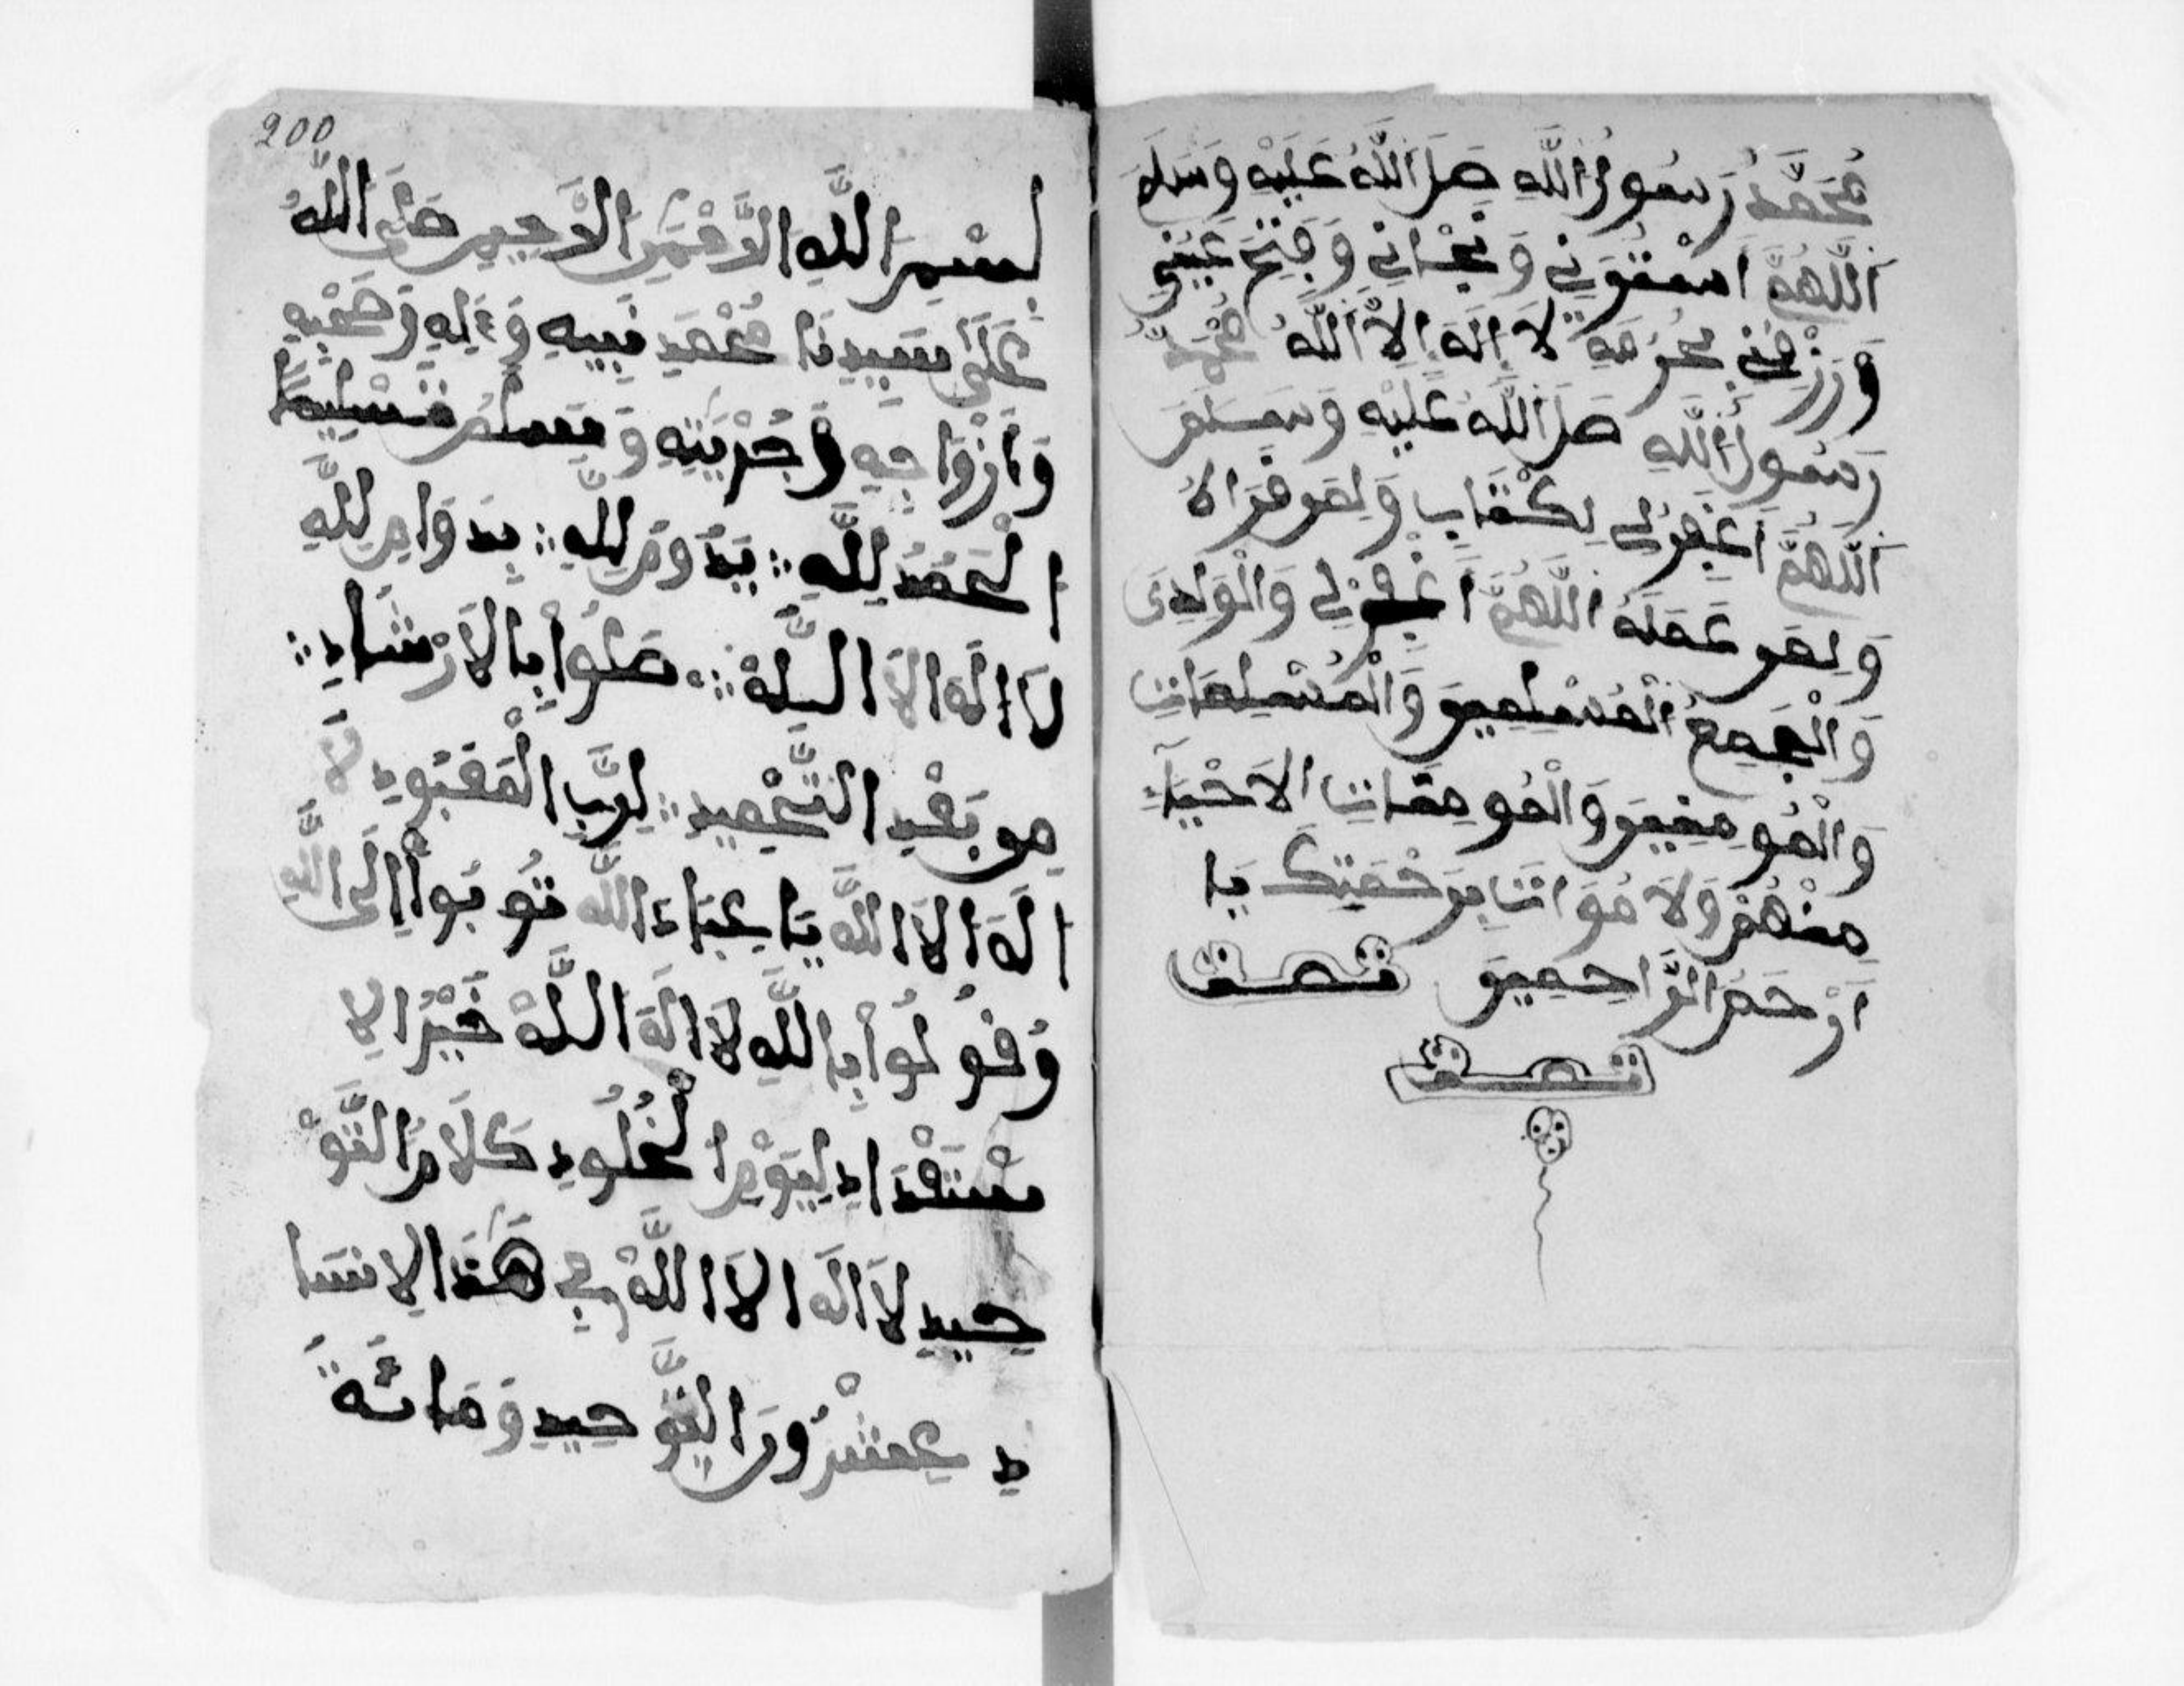 مُحَمَّدٌ رَسُولُ اللَّهِ صَلَ اللَّهُ عَلَيْهِ وَسَلَمَ
اَللَّهُمَّ اسْتُرَنِي وَنَجْانِي وَفَتِحَ عَيْنِي
وَرْزِقْنِي بِحُرْمَةِ لَا إِلَهَ إِلَّا اللَّهُ مُحَمَّدٌ
رَسُولُ اللَّهِ صَلَ اللَّهُ عَلَيْهِ وَسَلَمَ
اَللَّهُمَّ اغْفِرْلِي لِكْتَابِ وَلِمَن قَرَاهُ
وَلِمَن عَمَلَهُ اللَّهُمَّ اغْفِرْلِي وَالْوَلِدَى
وَالْجَمِعُ الْمُسْلِمِينَ وَالْمُسْلِمَاتِ
وَالْمُومِنِينَ وَالْمُومِنَاتِ الْاَحْيَآءِ
مِنْهُمْ وَلَا مُوَاتِ بِرَحْمَتِكَ يَا
اَرْحَمَ الرَّاحِمِينَ تمت
تمت
200
بِسْمِ اللَّهِ الرَّحْمَنِ الرَّحِيمِ صَلَّى اللَّهُ
عَلَى سَيِدِنَا مُحَمَدٍ نَبِيِهِ وَءَالِهِ وَصَحْبِهِ
وَأَزْوَاجِهِ وَذُرِّيَتِهِ وَسَلِّمْ تَسْلِيمًا
اَلْحَمْدُ لِلَّهِ ∴ يَدُومُ لِلَّهِ ∴ بِدَوَامِ لِلَّهِ
لَا اِلَهَ اِلَا اللَّهْ ∴ صَلُوا بِالْاَرْشَادِ ∴
مِن بَعْدِ التَّحْمِيدِ ∴ لِرَبِّ الْمَعْبُودِ لَا
اِلَهَ اِلَا اللَّهُ يَا عِبَادَ اللَّهِ تُوبُوا اِلَى اللَّهِ
وَقُولُوا بِاللَّهِ لَا اِلَهَ اللَّهْ خَيْرُ الِا
سْتَعْدَادِ لِيَوْمِ الْخُلُودِ كَلَامُ التَّوْ
حِيدِ لَا اِلَهَ اِلَا اللَّهْ فِي هَذَا الِانْشَا
دِ عِشْرُونَ التَّوْحِيدِ وَمَائَةً